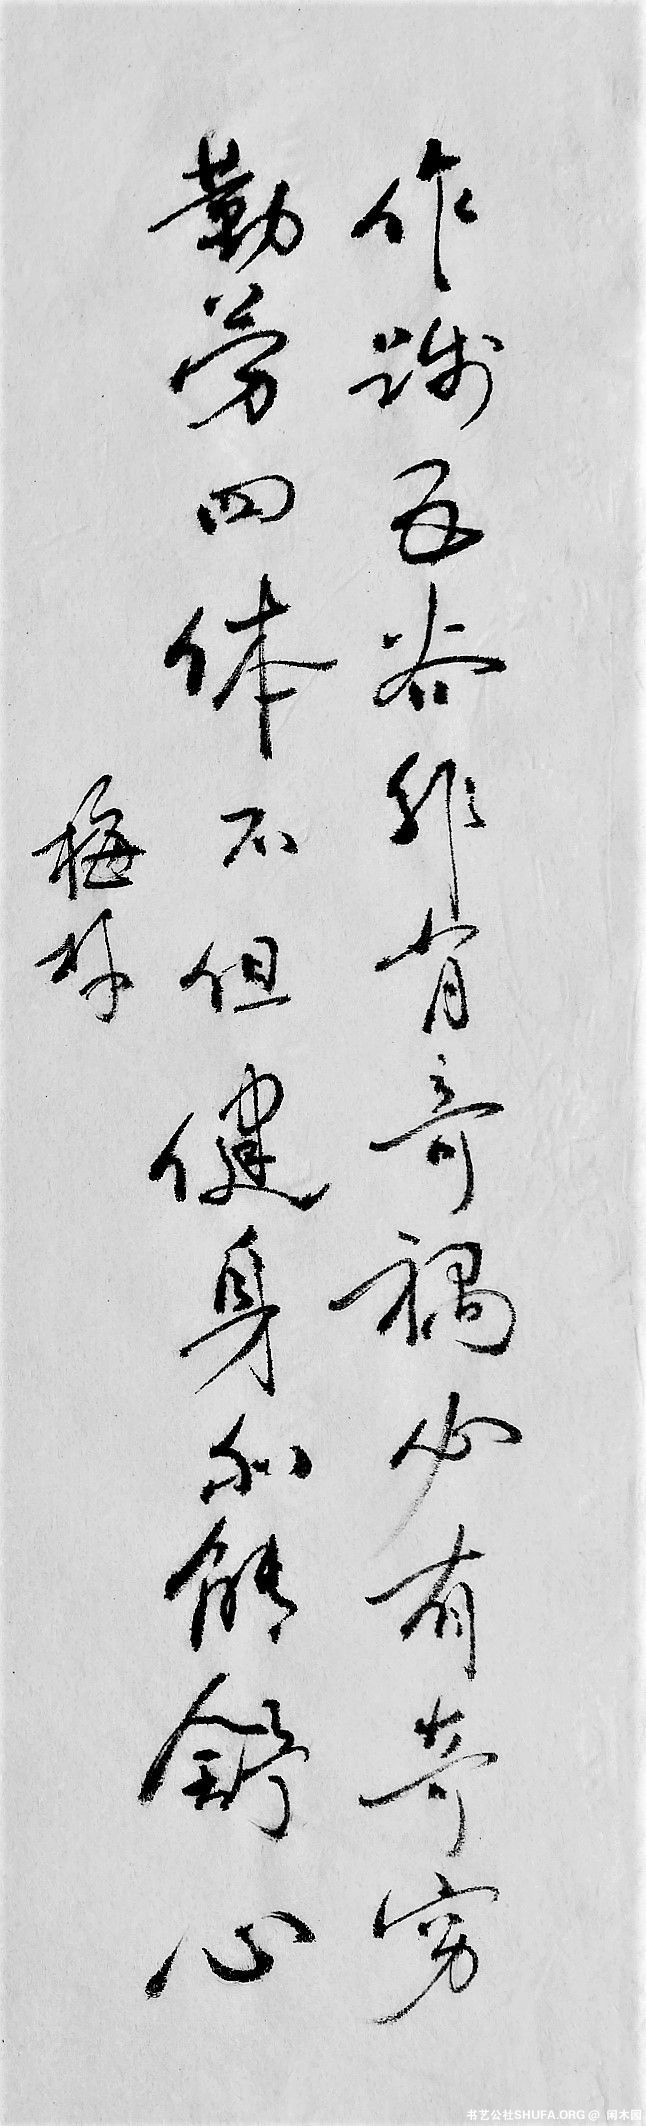 作践五谷非有奇祸必有奇穷
勤劳四体不但健身亦能舒心
梅林
书艺公社SHUFA.ORG @ 闲木园